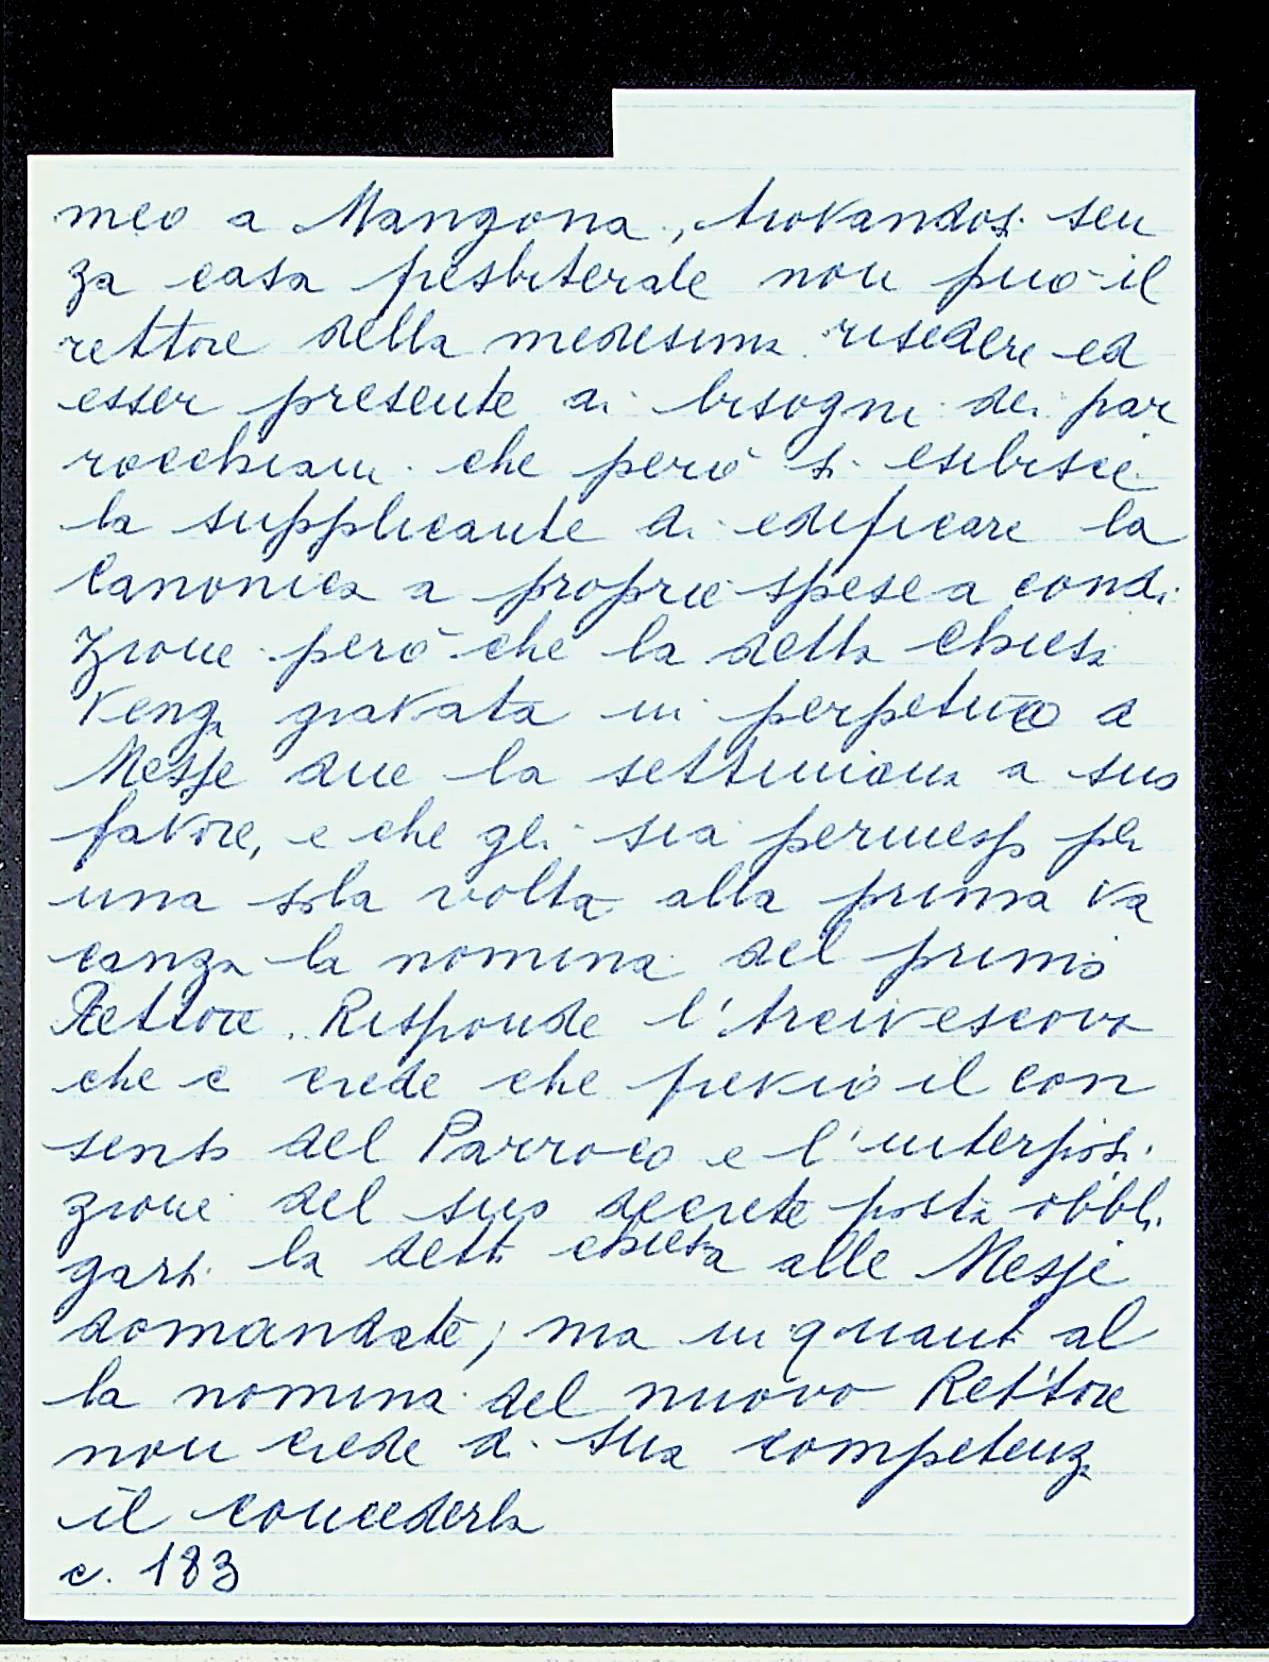 meo a Mangona, trovandosi sen
za casa presbiterale non può il
rettore della medesima risedere ed
esser presente ai bisogni dei par
rocchiani che però si esibisce
la supplicante di edificare la
canonica a proprie spese a condi
zione però che la detta chiesa
venga gravata in perpetuo a
Messe due la settimana a suo
favore, e che gli sia permesso per
una sola volta alla prima va
canza la nomina del primo
Rettore. Risponde l'Arcivescovo
che e crede che previo il con
senso del Parroco e l'interposi
zione del suo decreto possa obbli
garsi la detta chiesa alle Messe
domandate; ma in quanto al
la nomina del nuovo Rettore
non crede di sua competenza
il concederla
c. 183